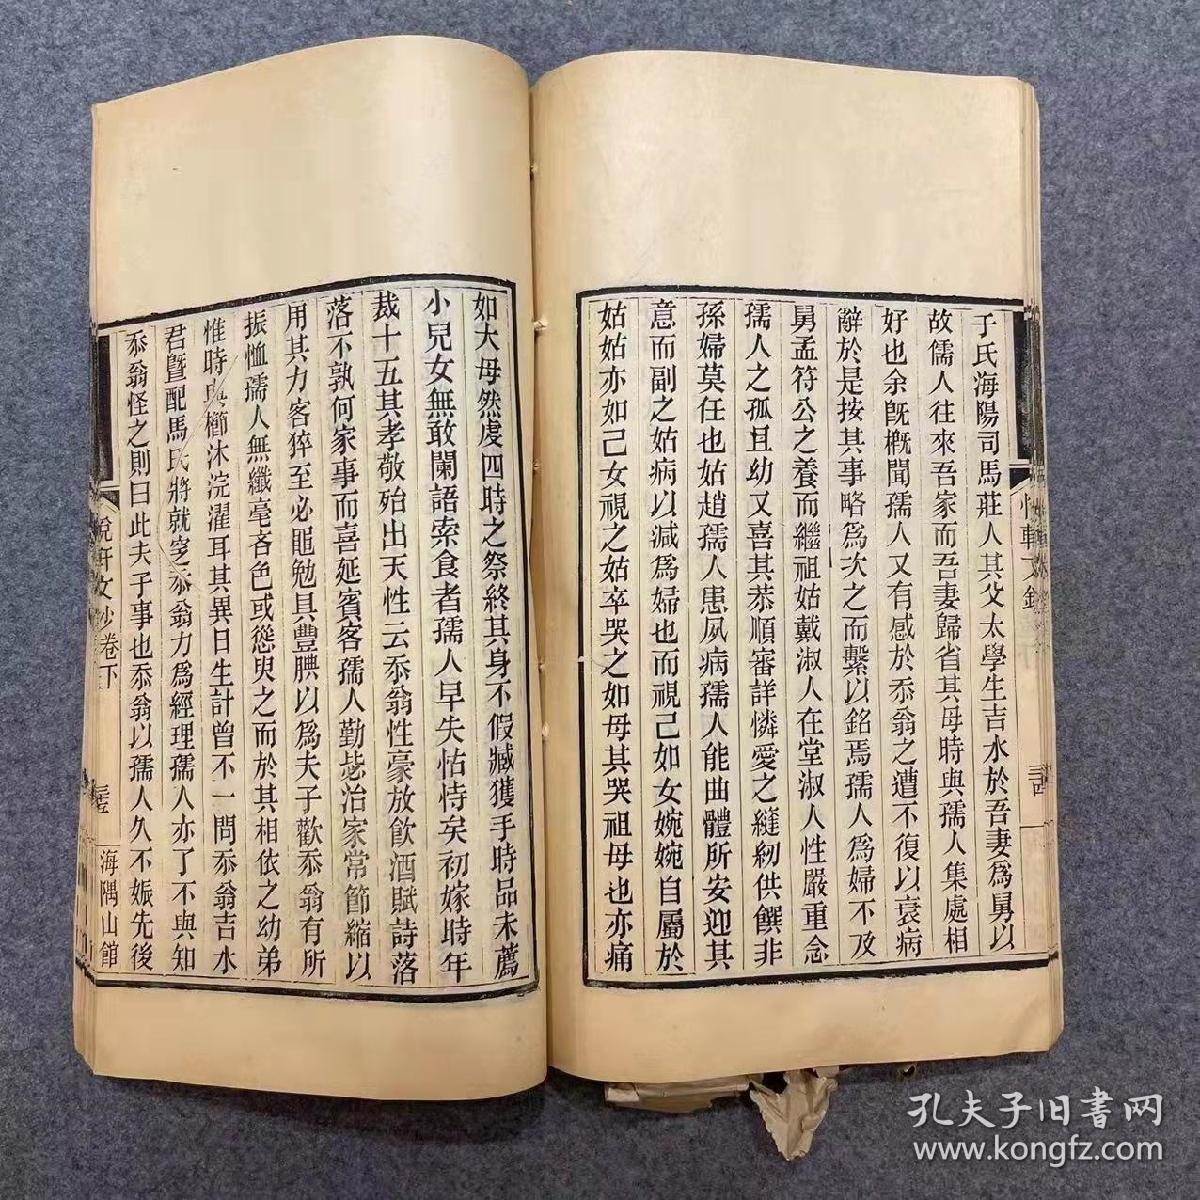 于氏海陽司馬莊人其父太學生吉水於吾妻爲舅以
故儒人往來吾家而吾妻歸省其母時與孺人集處相
好也余旣槪聞孺人又有感於忝翁之遭不復以衰病
辭於是按其事略爲次之而繫以銘焉孺人爲婦不及
舅孟符公之養而繼祖姑戴淑人在堂淑人性嚴重念
孺人之孤且幼又喜其恭順審詳憐愛之縫紉供饌非
孫婦莫任也姑趙孺人患夙病孺人能曲體所安迎其
意而副之姑病以減爲婦也而視己如女婉婉自屬於
姑姑亦如己女視之姑卒哭之如母其哭祖母也亦痛
如大母然虔四時之祭終其身不假臧獲手時品未薦
小兒女無敢闌語索食者孺人早失怙恃矣初嫁時年
裁十五其孝敬殆出天性云忝翁性豪放飮酒賦詩落
落不孰何家事而喜延賓客孺人勤毖治家常節縮以
用其力客猝至必黽勉具豐腆以爲夫子歡忝翁有所
振恤孺人無纖毫吝色或慫臾之而於其相依之幼弟
惟時與櫛沐浣濯耳其異日生計曾不一問忝翁吉水
君曁配馬氏將就窆忝翁力爲經理孺人亦了不與知
忝翁怪之則曰此夫子事也忝翁以孺人久不娠先後
悅軒文鈔卷下
海隅山館
孔夫子旧書网
www.kongfz.com